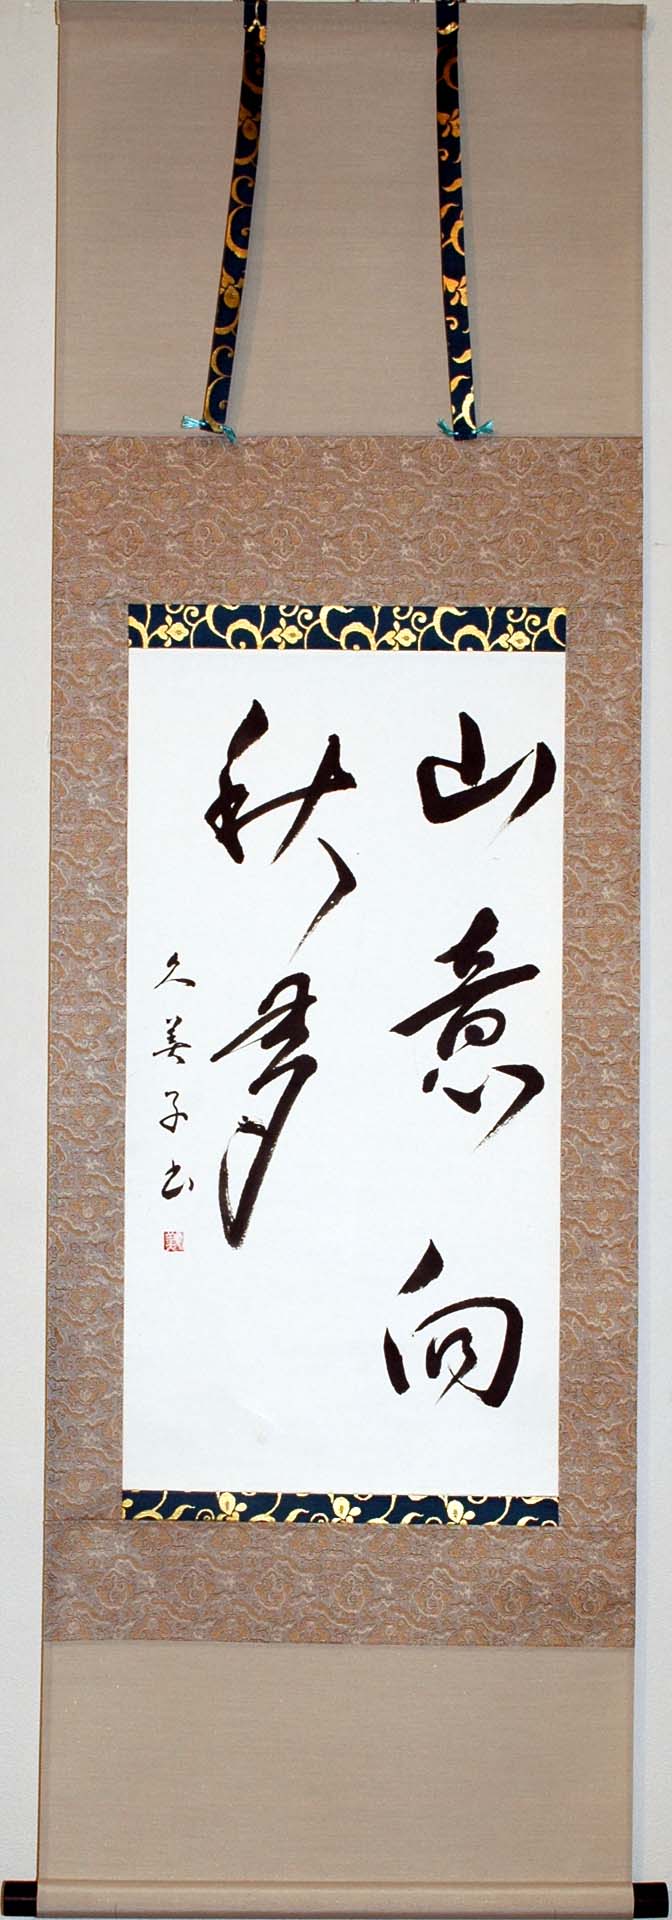 山意向
秋多
久美子書